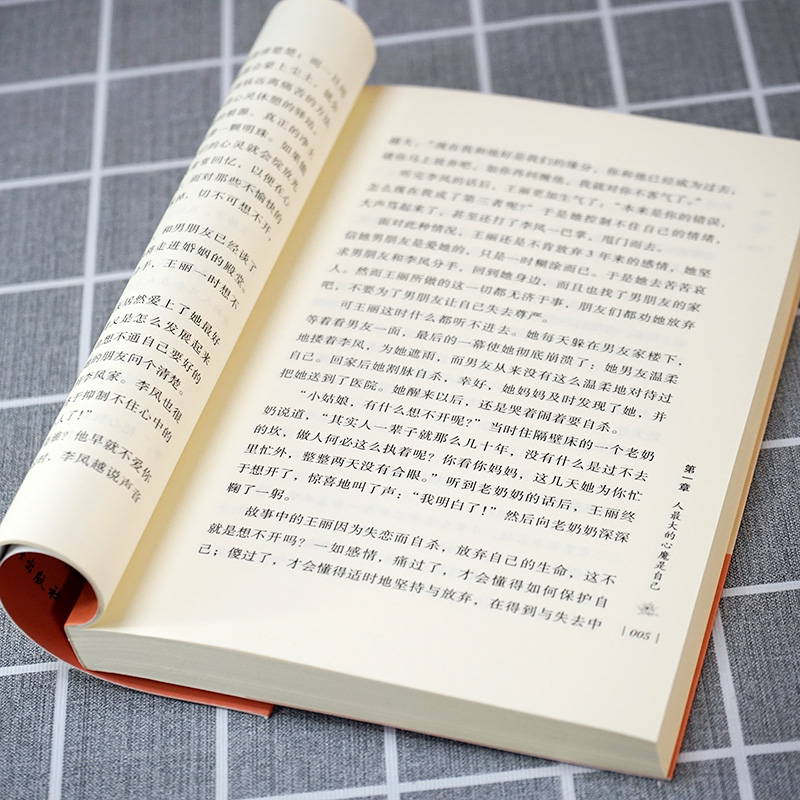 清楚楚；而一旦场
会蒙上尘土，就会
够远离痛苦的方法
心灵休憩的驿站，
根源。真正的净土
一颗明珠。如果她
的心灵就会绽放光
常回忆，以便在心
面对那些不愉快的
掉，切不可想不开，
和男朋友已经谈了
将走进婚姻的殿堂。
手，王丽一时想不
居然爱上了她最好
又是怎么发展起来
想不通自己要好的
的朋友问个清楚。
李凤家。李凤也很
于抑制不住心中的
人了！”
他早就不爱你
时，李凤越说声音
越大，“现在我和他好是我们的缘分，你和他已经成为过去，
请你马上放弃吧，如你再纠缠他，我就对你不客气了。”
听完李凤的话后，王丽更加生气了，“本来是你的错误，
怎么现在我成了第三者呢？”于是她控制不住自己的情绪，
大声骂起来了，甚至还打了李凤一巴掌，甩门而去。
面对此种情况，王丽还是不肯放弃3年来的感情，她坚
信她男朋友是爱她的，只是一时糊涂而已。于是她去苦苦哀
求男朋友和李凤分手，回到她身边，而且也找了男朋友的家
人。然而王丽所做的这一切都无济于事，朋友们都劝她放弃
吧，不要为了男朋友让自己失去尊严。
可王丽这时什么都听不进去。她每天躲在男友家楼下，
等着看男友一面，最后的一幕使她彻底崩溃了：她男友温柔
地搂着李凤，为她遮雨，而男友从来没有这么温柔地对待过
自己。回家后她割脉自杀，幸好，她妈妈及时发现了她，并
把她送到了医院。她醒来以后，还是哭着闹着要自杀。
“小姑娘，有什么想不开呢？”当时住隔壁床的一个老奶
奶说道，“其实人一辈子就那么几十年，没有什么是过不去
的坎，做人何必这么执着呢？你看你妈妈，这几天她为你忙
里忙外，整整两天没有合眼。”听到老奶奶的话后，王丽终
于想开了，惊喜地叫了声：“我明白了！”然后向老奶奶深深
鞠了一躬。
故事中的王丽因为失恋而自杀，放弃自己的生命，这不
就是想不开吗？一如感情，痛过了，才会懂得如何保护自
己；傻过了，才会懂得适时地坚持与放弃，在得到与失去中
第一章 人最大的心魔是自己
005
出版社